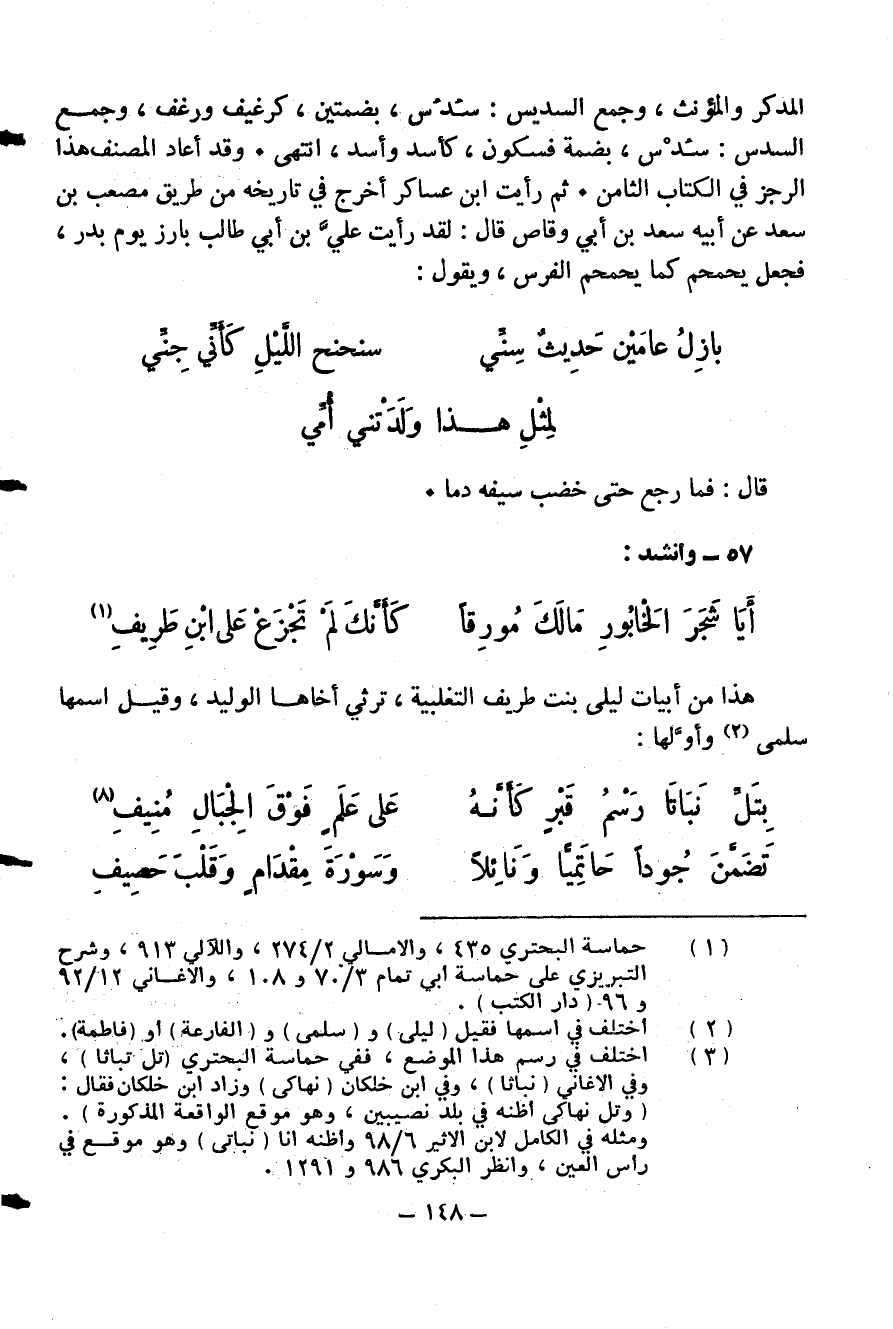 المدكر والمؤنث ، وجمع السديس : سُدُس ، بضمتين ، كرغيف ورغف ، وجمــع
السدس : سُدْس ، بضمة فسكون ، كأسد وأسد ، انتهى • وقد أعاد المصنف هذا
الرجز في الكتاب الثامن • ثم رأيت ابن عساكر أخرج في تاريخه من طريق مصعب بن
سعد عن أبيه سعد بن أبي وقاص قال : لقد رأيت عليَّ بن أبي طالب بارز يوم بدر ،
فجعل يحمحم كما يحمحم الفرس ، ويقول :
بازِلُ عامَيْن حَدِيثٌ سِنِّي سنحنح اللَّيْلِ كَأَنِّي جِنِّي
لِمْثلِ هــــذا ولَدَتْني أُمِّي
قال : فما رجع حتى خضب سيفه دما •
٥٧ ــ وانشد :
أَيَا شَجَرَ الْخَابُورِ مَالَكَ مُورِقاً كَأَنَّكَ لَمْ تَجْزَعْ عَلى ابْنِ طَرِيفِ (١)
هذا من أبيات ليلى بنت طريف التغلبية ، ترثي أخاهــا الوليد ، وقيــل اسمها
سلمى (٢) وأوّلها :
بِتَلِّ نَبَاتَا رَسْمُ قَبْرٍ كَأَنَّـهُ عَلى عَلَمٍ فَوْقَ الْجِبَالِ مُنِيفِ (٨)
تَضَمَّنَ جُوداً حَاتِمِيًّا وَنَائِلاً وَسَوْرَةَ مِقْدَامٍ وَقَلْبَ حَصِيفِ
(١) حماسة البحتري ٤٣٥ ، والامــالي ٢٧٤/٢ ، واللآلي ٩١٣ ، وشرح
التبريزي على حماسة ابي تمام ٧٠/٣ و ١٠٨ ، والاغــاني ٩٢/١٢
و ٩٦ ( دار الكتب ) .
(٢) اختلف في اسمها فقيل ( ليلى ) و ( سلمى ) و ( الفارعة ) او ( فاطمة).
(٣) اختلف في رسم هذا الموضع ، ففي حماسة البحتري (تل تباثا ) ،
وفي الاغاني ( نباثا ) ، وفي ابن خلكان ( نهاكى ) وزاد ابن خلكان فقال :
( وتل نهاكى اظنه في بلد نصيبين ، وهو موقع الواقعة المذكورة ) .
ومثله في الكامل لابن الاثير ٩٨/٦ واظنه انا ( نباتى ) وهو موقــع في
رأس العين ، وانظر البكري ٩٨٦ و ١٢٩١ .
ــ ١٤٨ ــ